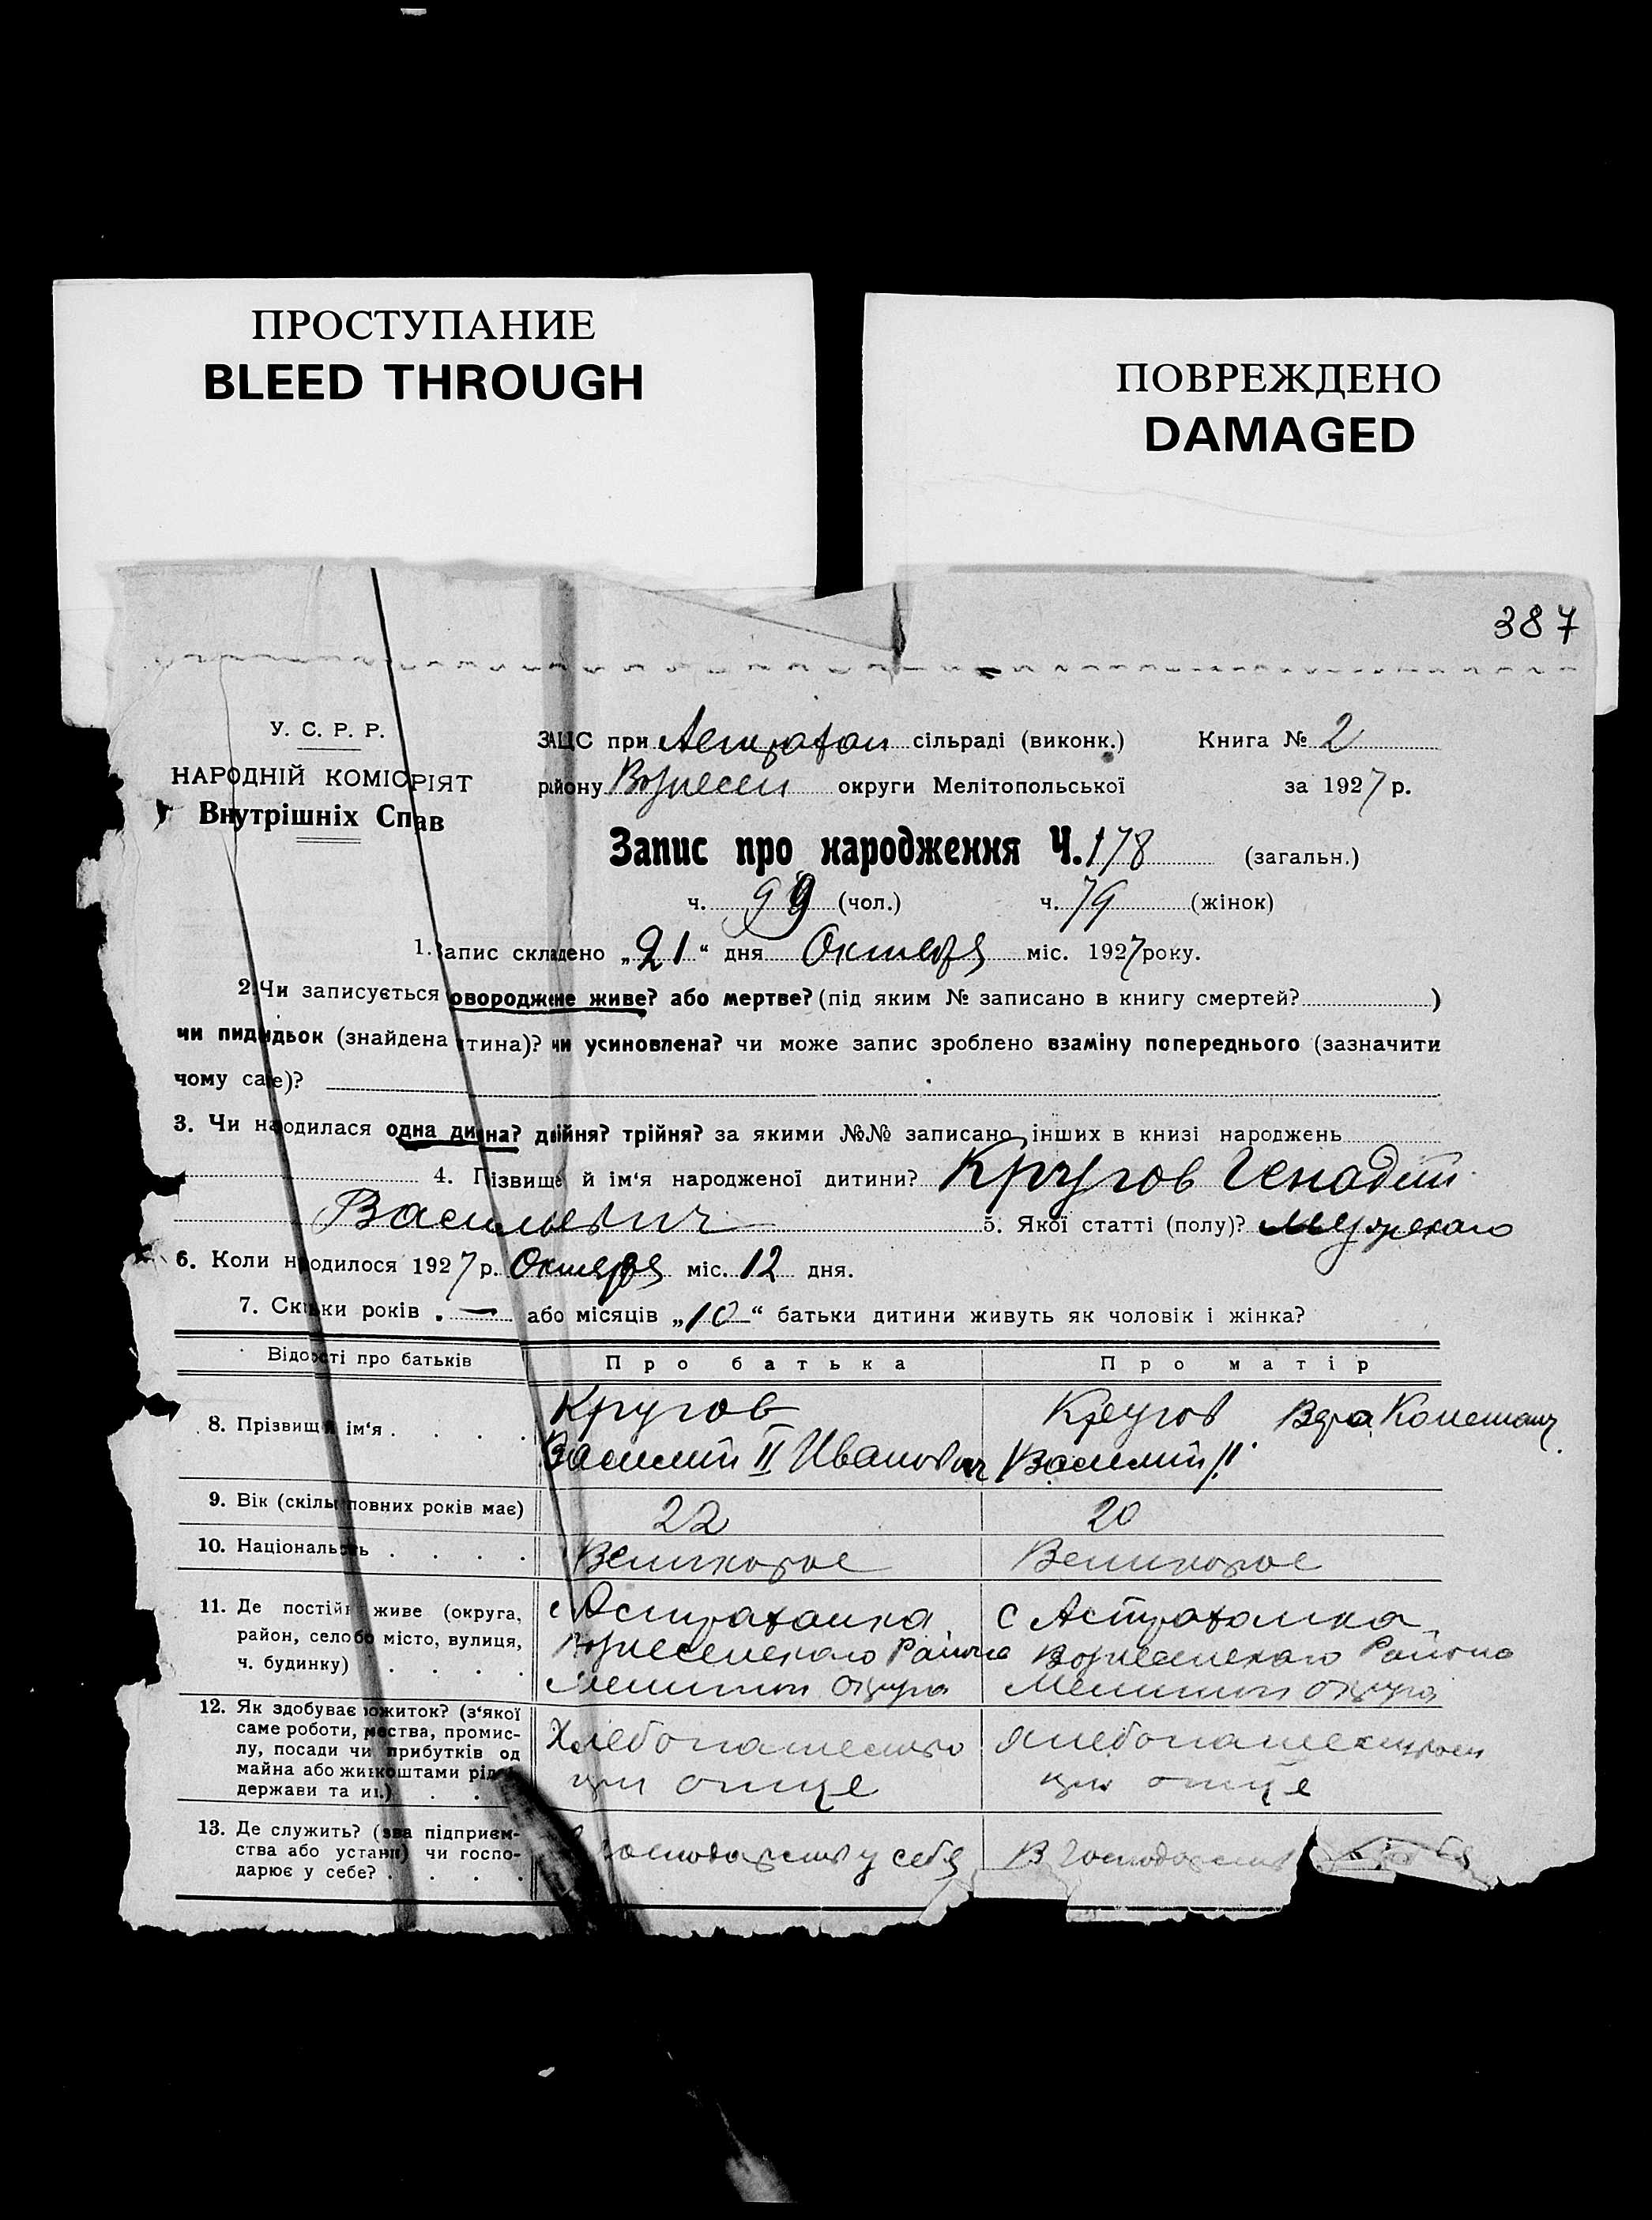 ПРОСТУПАНИЕ
BLEED THROUGH
ПОВРЕЖДЕНО
DAMAGED
387
У. С. Р. Р.
НАРОДНІЙ КОМІСРІЯТ
Внутрішніх Спав
ЗАЦС при Астрахан сільраді (виконк.) Книга № 2
району Вознесен округи Мелітопольської за 1927 р.
Запис про народження Ч. 178 (загальн.)
ч. 99 (чол.) ч. 79 (жінок)
1. Запис складено „21“ дня Октября міс. 1927 року.
2. Чи записується овороджене живе? або мертве? (під яким № записано в книгу смертей? )
чи пидидьок (знайдена тина)? чи усиновлена? чи може запис зроблено взаміну попереднього (зазначити
чому саме)?
3. Чи народилася одна дина? двійня? трійня? за якими №№ записано інших в книзі народжень
4. Пізвище й ім'я народженої дитини? Кругов Генадий
Васильевич 5. Якої статті (полу)? Мужскаго
6. Коли народилося 1927 р. Октября міс. 12 дня.
7. Скільки років „ — або місяців „10“ батьки дитини живуть як чоловік і жінка?
Відості про батьків Про батька Про матір
8. Прізвище ім'я . . . . Кругов Кругов Вера
Василий II Иванович Василий II
9. Вік (скільки повних років має) 22 20
10. Національсть . . . . Великорос Великорос
11. Де постійно живе (округа, район, село або місто, вулиця, ч. будинку) . . . .
с Астраханка с Астраханка
Вознесенскаго Района Вознесенскаго Района
Мелитоп округа Мелитоп округа
12. Як здобуває пожиток? (з'якої
саме роботи, мества, промис-
лу, посади чи прибутків од
майна або жив коштами рід
держави та ин.) . .
Хлебопашество Хлебопашеством
при отце при отце
13. Де служить? (зва підприєм-
ства або устани) чи госпо-
дарює у себе? . . . .
господарств у себя В господарств